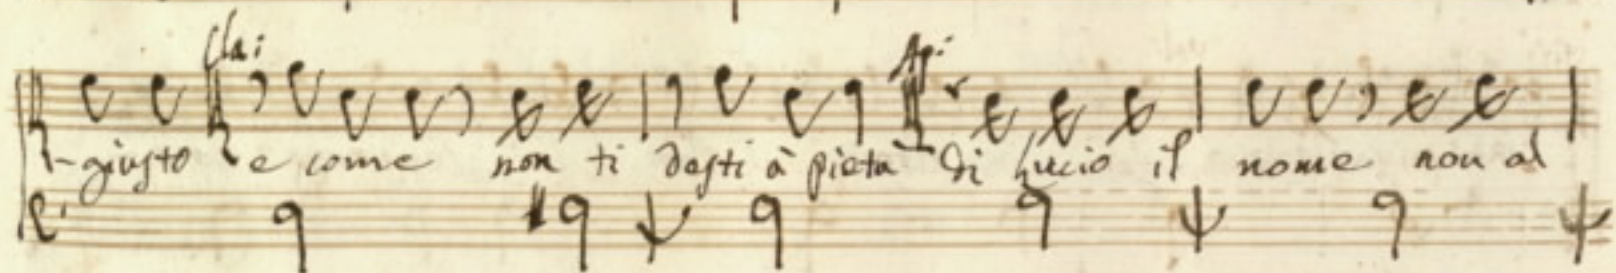 Cla:
-giusto e come non ti desti à pietà di Lucio il nome non al